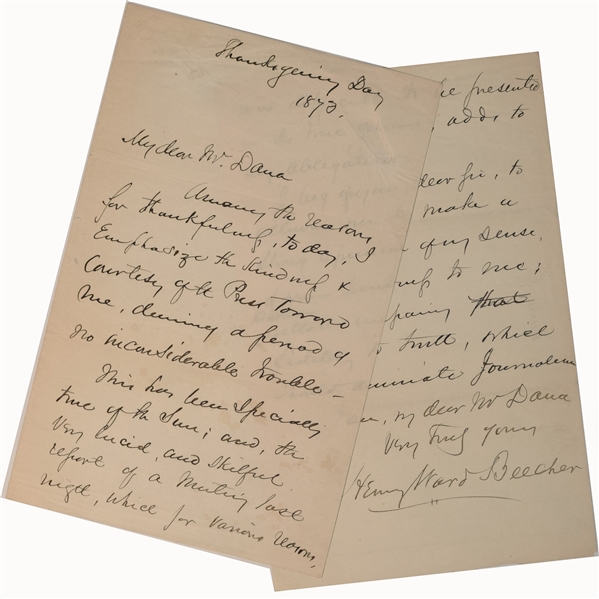 Thanksgiving Day
1873.
My dear Mr. Dana
Among the reasons
for thankfulness, to day, I
Emphasize the kindness &
Courtesy of the Press Toward
me, during a period of
no inconsiderable trouble—
This has been specially
true of the Sun; and, the
very lucid, and skilful
report of a meeting last
night, which for various reasons,
be presented
adds to
dear Sir, to
make a
of my sense,
to me;
that
truth, which
Journalism
, my dear Mr Dana
Very truly yours
Henry Ward Beecher